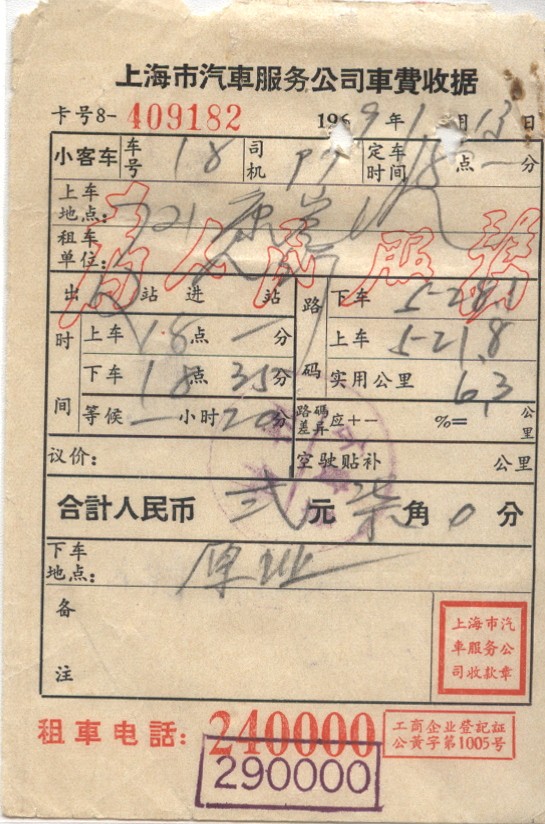 上海市汽車服务公司車費收据
卡号8- 409182 1969年1月13日
小客车 车号 18 司机 定车时间 18点一分
上车地点:
租车单位:
为人民服务
出 站 进 站
时间
上车 18点一分
下车 18点35分
等候一小时20分
路码
下车 5-28.1
上车 5-21.8
实用公里 6.3
路碼差异 应+- %= 公里
议价:
空驶贴补 公里
合計人民币 贰元柒角0分
下车地点: 原地
备注
上海市汽
車服务公
司收款章
租車电話: 240000
290000
工商企业登記証
公黃字第1005号